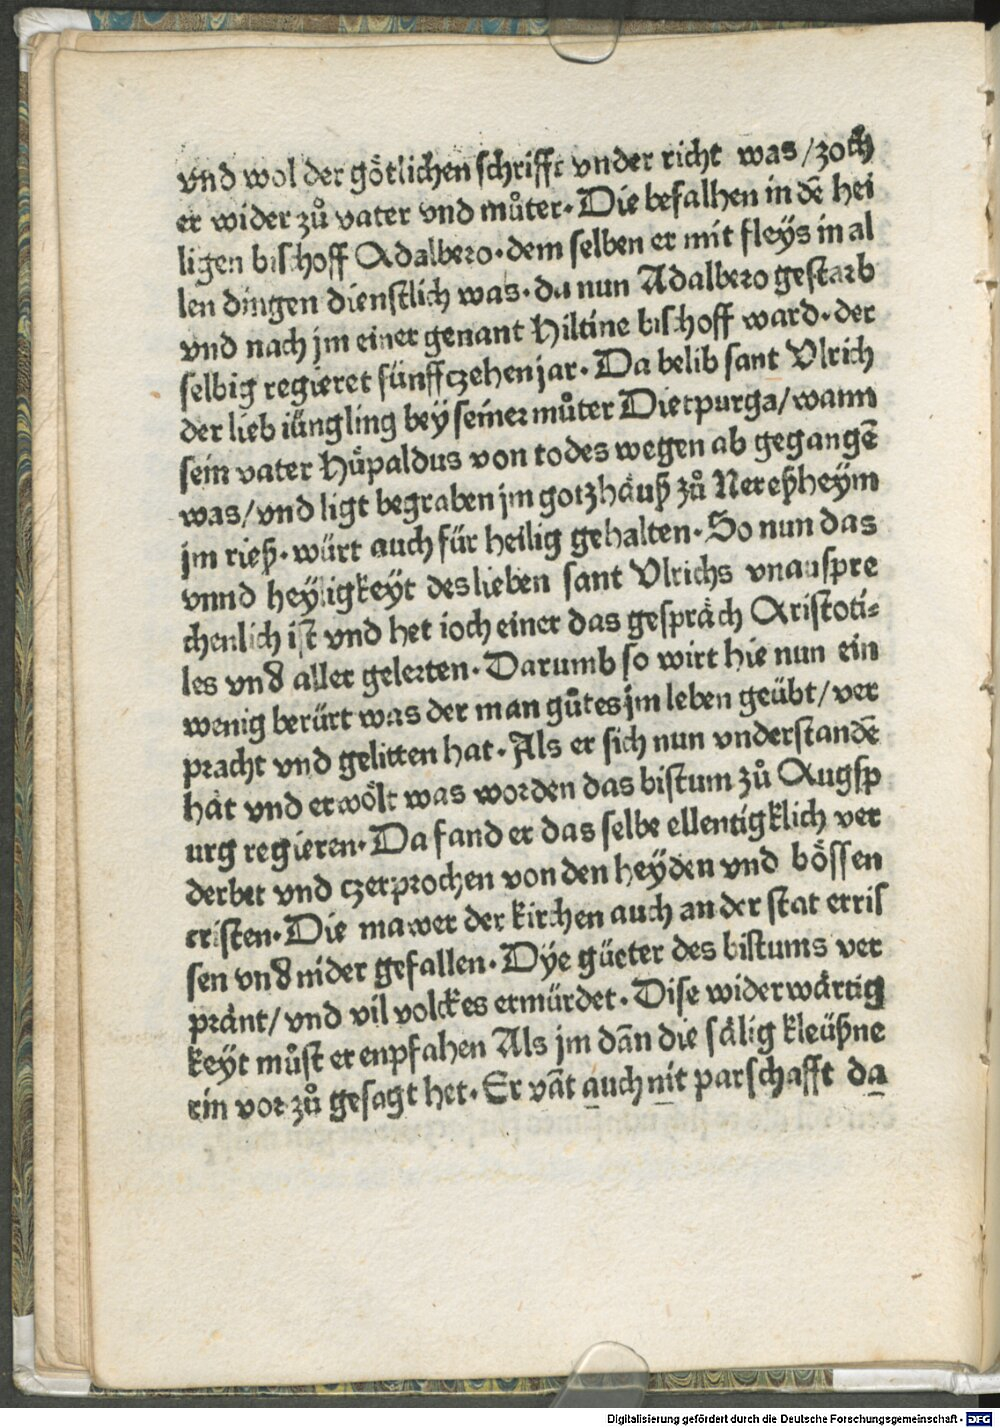 vnd wol der gȍtlichen schrifft vnder richt was/zoch
er wider zů vater vnd můter. Die befalhen in dē hei
ligen bischoff Adalbero. dem selben er mit fleÿs in al
len dingen dienstlich was. da nun Adalbero gestarb
vnd nach jm einer genant Hiltine bischoff ward. der
selbig regieret fünffczehen jar. Da belib sant Vlrich
der lieb iüngling beÿ seiner můter Dietpurga/wann
sein vater Hüpaldus von todes wegen ab gegangē
was/vnd ligt begraben jm gotzhäuß zů Nereßheÿm
jm rieß. würt auch für heilig gehalten. So nun das
vnnd heÿligkeÿt des lieben sant Vlrichs vnauspre
chenlich ist vnd het ioch einer das gespräch Aristoti⸗
les vnd aller gelerten. Darumb so wirt hie nun ein
wenig berürt was der man gůtes jm leben geübt/ver
pracht vnd gelitten hat. Als er sich nun vnderstandē
hat vnd erwölt was worden das bistum zů Augsp
urg regieren. Da fand er das selbe ellentigklich ver
derbet vnd czerprochen von den heÿden vnd bössen
cristen. Die mawer der kirchen auch an der stat erris
sen vnd nider gefallen. Dÿe güeter des bistums ver
pränt/vnd vil volckes ermürdet. Dise widerwärtig
keÿt můst er enpfahen Als jm dān die sälig kleüßne
rin vor zů gesagt het. Er vāt auch nit parschafft da
Digitalisierung gefördert durch die Deutsche Forschungsgemeinschaft - DFG